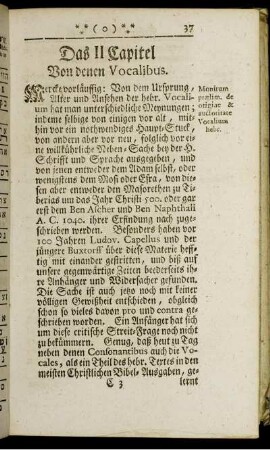 *.*( o )*.* 37
Das II Capitel
Von denen Vocalibus.
Mercke vorläuffig: Von dem Ursprung,
Alter und Ansehen der hebr. Vocali-
um hat man unterschiedliche Meynungen;
indeme selbige von einigen vor alt, mit-
hin vor ein nothwendiges Haupt-Stuck,
von andern aber vor neu, folglich vor ei-
ne willkührliche Neben-Sache bey der H.
Schrifft und Sprache ausgegeben, und
von jenen entweder dem Adam selbst, oder
wenigstens dem Mose oder Esra, von die-
sen aber entweder den Masorethen zu Ti-
berias um das Jahr Christi 500. oder gar
erst dem Ben Ascher und Ben Naphthali
A. C. 1040. ihrer Erfindung nach zuge-
schrieben werden. Besonders haben vor
100 Jahren Ludov. Capellus und der
jüngere Buxtorff über diese Materie heff-
tig mit einander gestritten, und biß auf
unsere gegenwärtige Zeiten beederseits ih-
re Anhänger und Widersacher gefunden.
Die Sache ist auch jetzo noch mit keiner
völligen Gewißheit entschieden, obgleich
schon so vieles davon pro und contra ge-
schrieben worden. Ein Anfänger hat sich
um diese critische Streit-Frage noch nicht
zu bekümmern. Genug, daß heut zu Tag
neben denen Consonantibus auch die Vo-
cales, als ein Theil des hebr. Textes in den
meisten Christlichen Bibel-Ausgaben, ge-
C 3 lernt
Monitum
prælim. de
origine &
auctoritate
Vocalium
hebr.